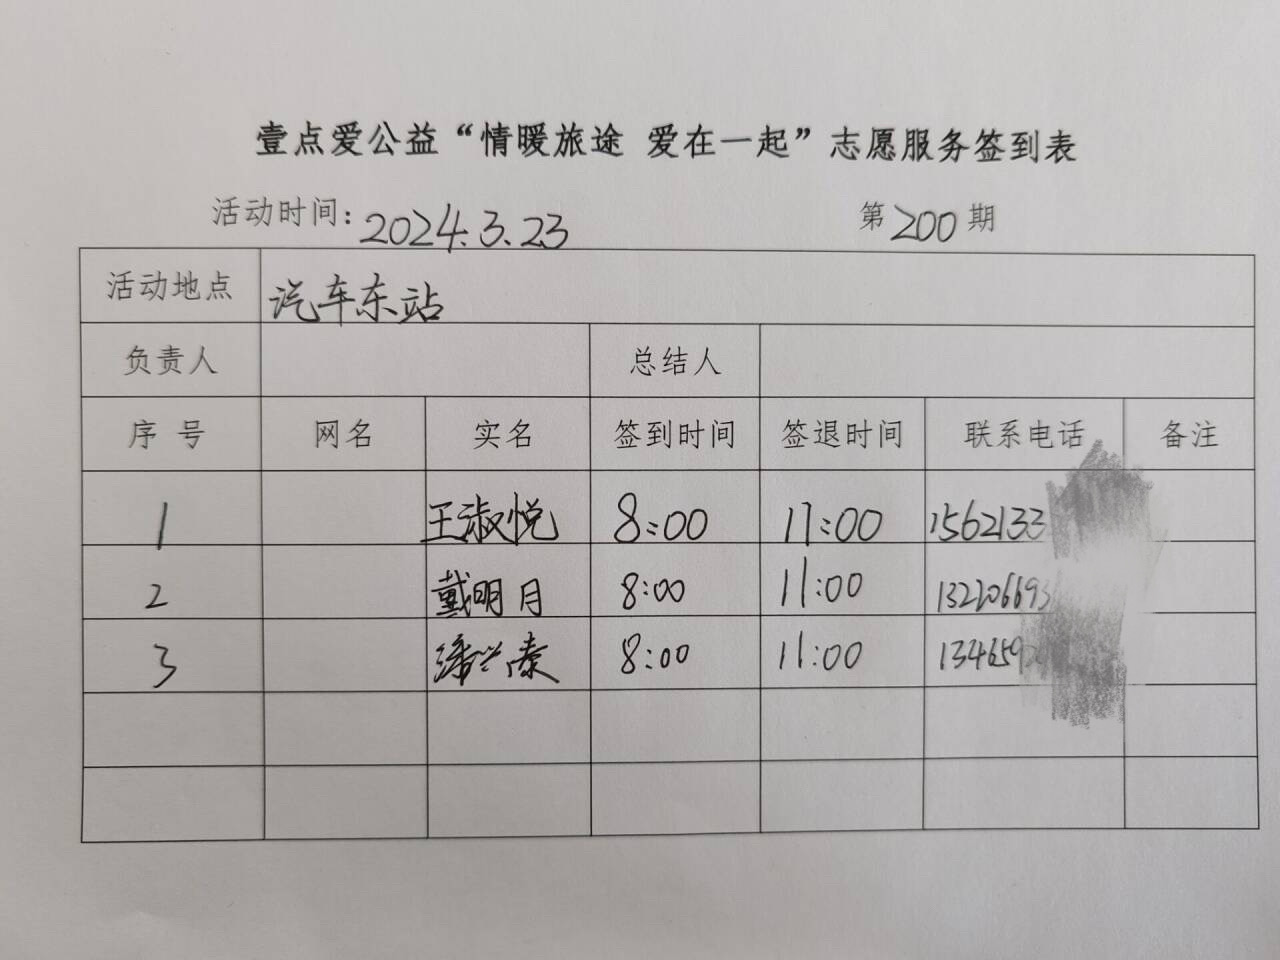 壹点爱公益“情暖旅途 爱在一起”志愿服务签到表
活动时间：2024.3.23 第200期
活动地点 汽车东站
负责人 总结人
序号 网名 实名 签到时间 签退时间 联系电话 备注
1 王淑悦 8:00 11:00 1562133
2 戴明月 8:00 11:00 13220669
3 8:00 11:00 1346592